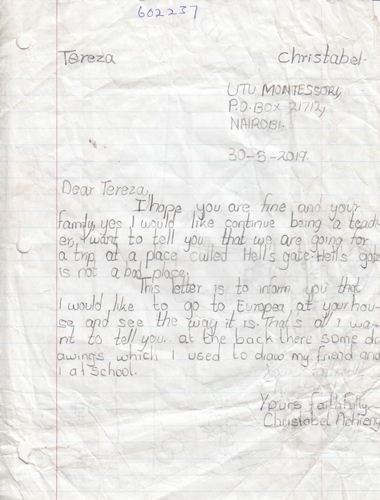 602237
Tereza Christabel.
UTU MONTESSORI,
P.O.BOX 21712,
NAIROBI.
30-5-2019.
Dear Tereza,
I hope you are fine and your
family, yes I would like continue being a teach-
er, I want to tell you that we are going for
a trip at a pace culled Hell's gate. Hell's gate
is not a bad place.
This letter is to inform you that
I would like to go to Europea at your hou-
se and see the way it is. That's all I wa-
nt to tell you. at the back there some dr
awings which I used to draw my friend and
I at school.
Yours faithfully,
Christabel